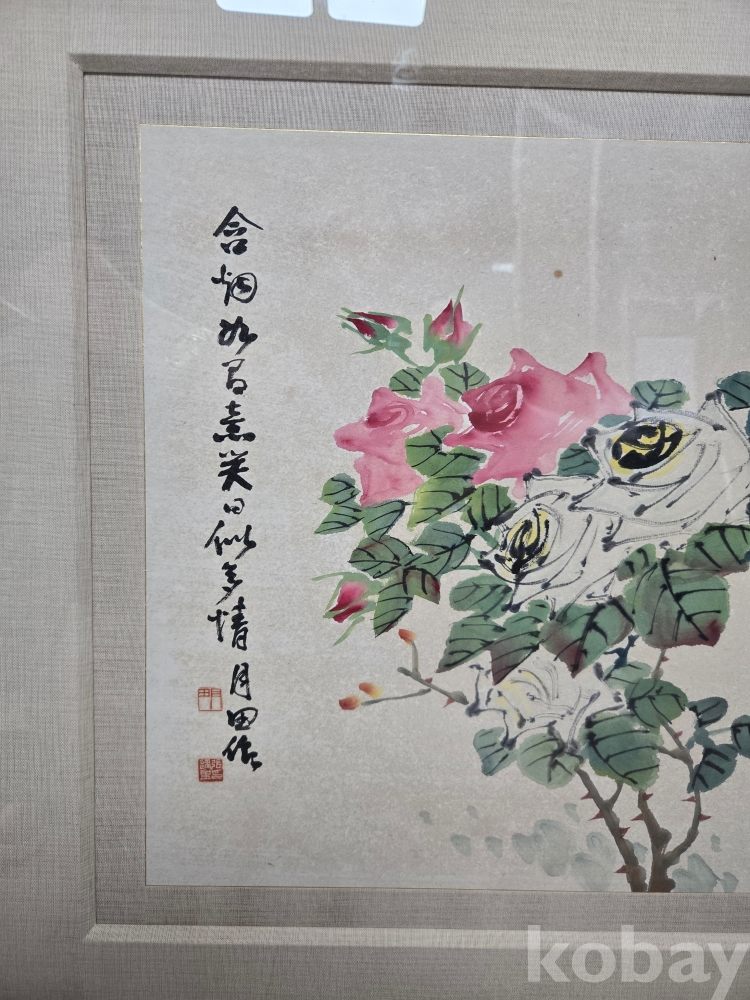 含烟如有意笑日似多情月田作
kobay